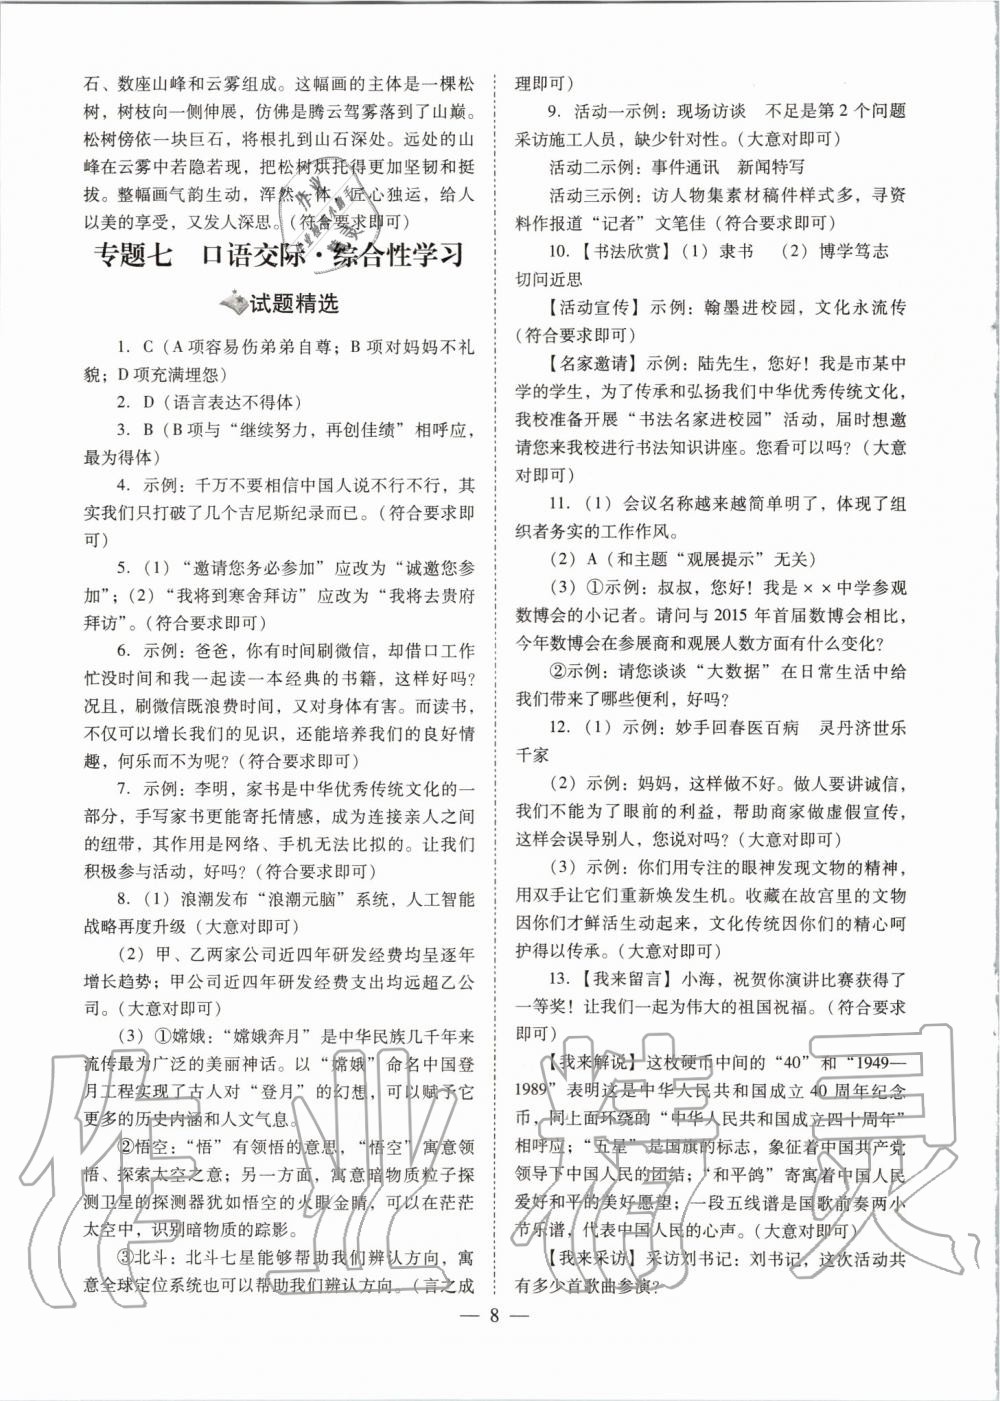 石、数座山峰和云雾组成。这幅画的主体是一棵松
树，树枝向一侧伸展，仿佛是腾云驾雾落到了山巅。
松树傍依一块巨石，将根扎到山石深处。远处的山
峰在云雾中若隐若现，把松树烘托得更加坚韧和挺
拔。整幅画气韵生动，浑然一体，匠心独运，给人
以美的享受，又发人深思。（符合要求即可）
专题七　口语交际·综合性学习
试题精选
1. C（A 项容易伤弟弟自尊；B 项对妈妈不礼
貌；D 项充满埋怨）
2. D（语言表达不得体）
3. B（B 项与“继续努力，再创佳绩”相呼应，
最为得体）
4. 示例：千万不要相信中国人说不行不行，其
实我们只打破了几个吉尼斯纪录而已。（符合要求即
可）
5. （1）“邀请您务必参加”应改为“诚邀您参
加”；（2）“我将到寒舍拜访”应改为“我将去贵府
拜访”。（符合要求即可）
6. 示例：爸爸，你有时间刷微信，却借口工作
忙没时间和我一起读一本经典的书籍，这样好吗？
况且，刷微信既浪费时间，又对身体有害。而读书，
不仅可以增长我们的见识，还能培养我们的良好情
趣，何乐而不为呢？（符合要求即可）
7. 示例：李明，家书是中华优秀传统文化的一
部分，手写家书更能寄托情感，成为连接亲人之间
的纽带，其作用是网络、手机无法比拟的。让我们
积极参与活动，好吗？（符合要求即可）
8. （1）浪潮发布“浪潮元脑”系统，人工智能
战略再度升级（大意对即可）
（2）甲、乙两家公司近四年研发经费均呈逐年
增长趋势；甲公司近四年研发经费支出均远超乙公
司。（大意对即可）
（3）①嫦娥：“嫦娥奔月”是中华民族几千年来
流传最为广泛的美丽神话。以“嫦娥”命名中国登
月工程实现了古人对“登月”的幻想，可以赋予它
更多的历史内涵和人文气息。
②悟空：“悟”有领悟的意思，“悟空”寓意领
悟、探索太空之意；另一方面，寓意暗物质粒子探
测卫星的探测器犹如悟空的火眼金睛，可以在茫茫
太空中，识别暗物质的踪影。
③北斗：北斗七星能够帮助我们辨认方向，寓
意全球定位系统也可以帮助我们辨认方向。（言之成
理即可）
9. 活动一示例：现场访谈　不足是第 2 个问题
采访施工人员，缺少针对性。（大意对即可）
活动二示例：事件通讯　新闻特写
活动三示例：访人物集素材稿件样式多，寻资
料作报道“记者”文笔佳（符合要求即可）
10. 【书法欣赏】（1）隶书　（2）博学笃志
切问近思
【活动宣传】示例：翰墨进校园，文化永流传
（符合要求即可）
【名家邀请】示例：陆先生，您好！我是市某中
学的学生，为了传承和弘扬我们中华优秀传统文化，
我校准备开展“书法名家进校园”活动，届时想邀
请您来我校进行书法知识讲座。您看可以吗？（大意
对即可）
11. （1）会议名称越来越简单明了，体现了组
织者务实的工作作风。
（2）A（和主题“观展提示”无关）
（3）①示例：叔叔，您好！我是××中学参观
数博会的小记者。请问与 2015 年首届数博会相比，
今年数博会在参展商和观展人数方面有什么变化？
②示例：请您谈谈“大数据”在日常生活中给
我们带来了哪些便利，好吗？
12. （1）示例：妙手回春医百病　灵丹济世乐
千家
（2）示例：妈妈，这样做不好。做人要讲诚信，
我们不能为了眼前的利益，帮助商家做虚假宣传，
这样会误导别人，您说对吗？（大意对即可）
（3）示例：你们用专注的眼神发现文物的精神，
用双手让它们重新焕发生机。收藏在故宫里的文物
因你们才鲜活生动起来，文化传统因你们的精心呵
护得以传承。（大意对即可）
13. 【我来留言】小海，祝贺你演讲比赛获得了
一等奖！让我们一起为伟大的祖国祝福。（符合要求
即可）
【我来解说】这枚硬币中间的“40”和“1949—
1989”表明这是中华人民共和国成立 40 周年纪念
币，同上面环绕的“中华人民共和国成立四十周年”
相呼应；“五星”是国旗的标志，象征着中国共产党
领导下中国人民的团结；“和平鸽”寄寓着中国人民
爱好和平的美好愿望；一段五线谱是国歌前奏两小
节乐谱，代表中国人民的心声。（大意对即可）
【我来采访】采访刘书记：刘书记，这次活动共
有多少首歌曲参演？
— 8 —
作业精灵